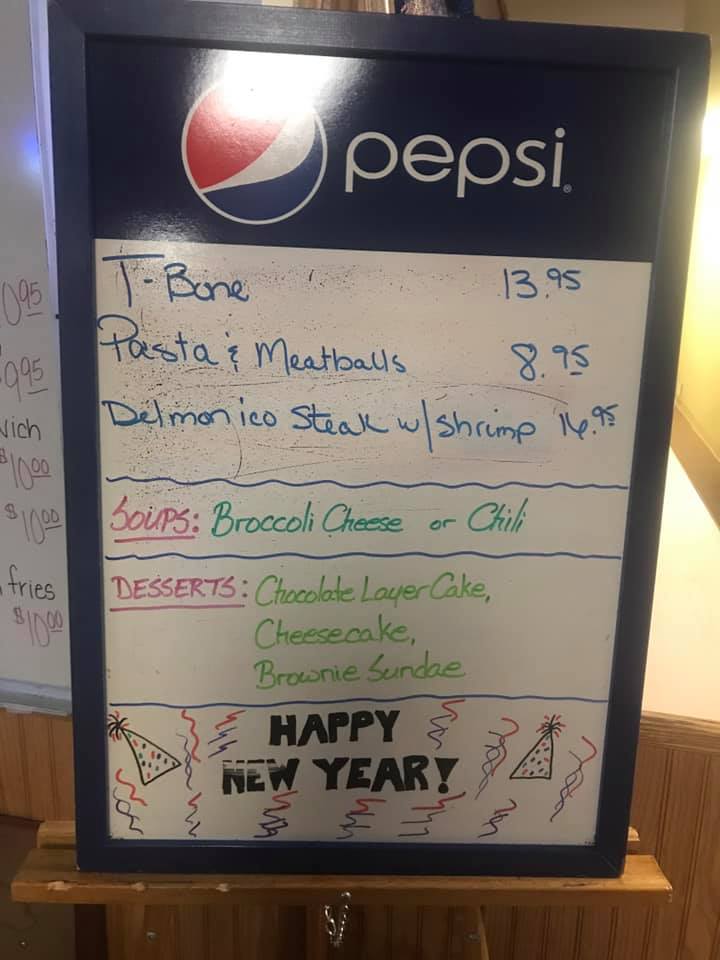 pepsi
T-Bone 13.95
Pasta & Meatballs 8.95
Delmonico Steak w/shrimp 14.95
SOUPS: Broccoli Cheese or Chili
DESSERTS: Chocolate Layer Cake,
Cheesecake,
Brownie Sundae
HAPPY
NEW YEAR!
$10.00
$10.00
fries
$10.00